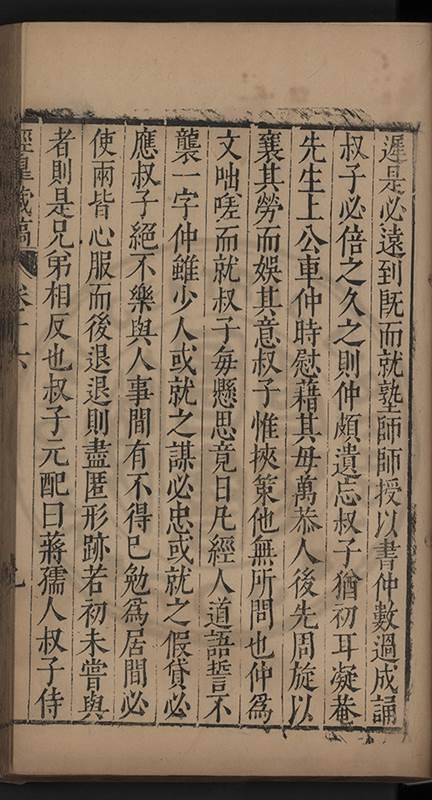 遲是必遠到旣而就塾師師授以書仲數過成誦
叔子必倍之久之則仲頗遺忘叔子猶初耳凝菴
先生上公車仲時慰藉其母萬恭人後先周旋以
襄其勞而娛其意叔子惟挾策他無所問也仲爲
文咄嗟而就叔子每懸思竟日凡經人道語誓不
襲一字仲雖少人或就之謀必忠或就之假貸必
應叔子絕不樂與人事間有不得已勉爲居間必
使兩皆心服而後退退則盡匿形跡若初未嘗與
者則是兄弟相反也叔子元配曰蔣孺人叔子侍
藏稿 卷十六